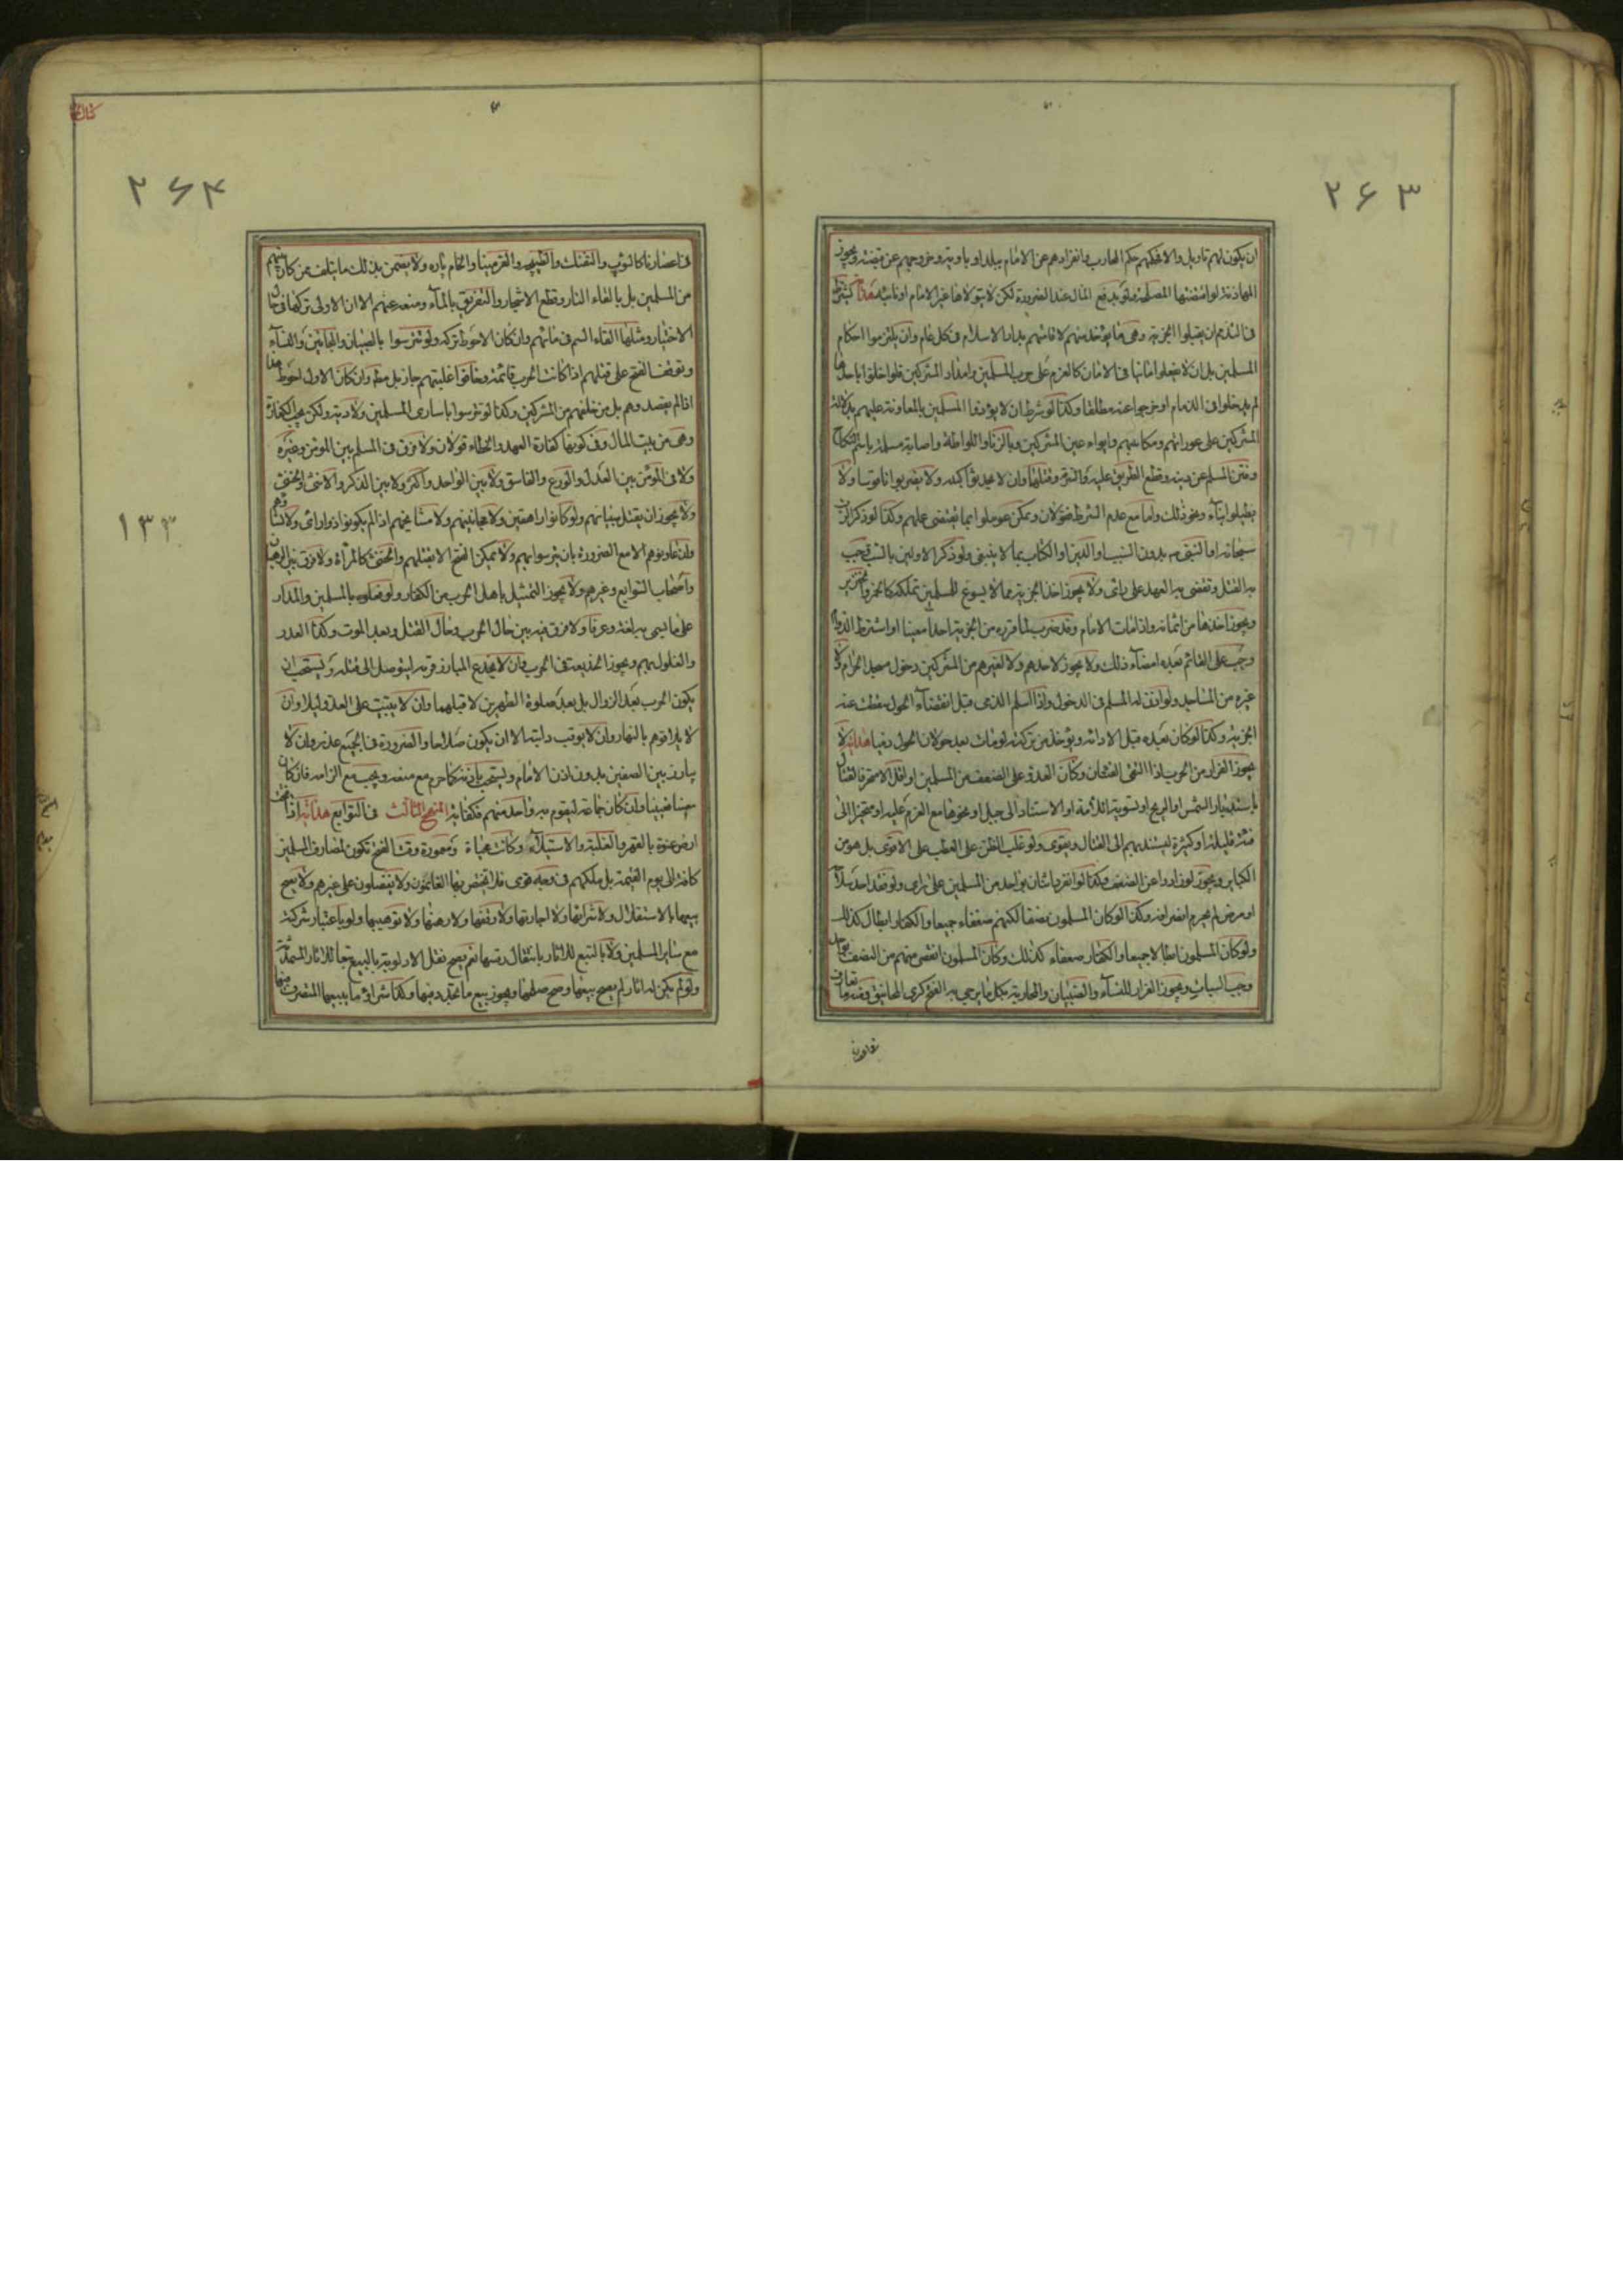 ٢۶٣
ان يكون لهم تاويل والا فحكمهم حكم المحارب وانفرادهم عن الامام ببلد او باوية وخروجهم عن قبضته ويجوز
المهادنة لو اقتضتها المصلحة ولو بدفع المال عند الضرورة لكن لا يتولاها غير الامام او نائبه هداية يشترط
فى الذمى ان يقبلوا الجزية وهى ما يؤخذ منهم لاقامتهم بدار الاسلام فى كل عام وان يلتزموا احكام
المسلمين بل ان لا يفعلوا منافيا فى الامان كالعزم على حرب المسلمين وامداد المشركين فلو اخلوا باحدها
لم يدخلوا فى الذمام او خرجوا عنه مطلقا وكذا لو شرط ان لا يؤذوا المسلمين بالمعاونة عليهم بدلالة
المشركين على عوراتهم ومكاتبتهم وايواء عين المشركين وبالزنا واللواطة واصابة مسلمة باسم النكاح
وفتن المسلم عن دينه وقطع الطريق عليه والسرقة وقتلها وان لا يحدثوا كنيسة ولا يضربوا ناقوسا ولا
يطيلوا بناء ونحو ذلك واما مع عدم الشرط فقولان ويمكن عوملوا بما يقتضى عليهم وكذا لو ذكر الرب
سبحانه او النبى بدون السب او الدين او الكتاب بما لا ينبغى ولو ذكر الاولين بالسب وجب
به القتل وتقضى به العهد على راى ولا يجوز اخذ الجزية مما لا يسوغ للمسلمين تملكه كالخمر والخنزير
ويجوز اخذها من اثمانه واذا مات الامام وقد ضرب لما قرره من الجزية احدا معينا او اشترط الدوام
وجب على القائم بعده امضاء ذلك ولا يجوز لاحدهم ولا لغيرهم من المشركين دخول مسجد الحرام ولا
غيره من المساجد ولو اذن له المسلم فى الدخول واذا اسلم الذمى قبل انقضاء الحول سقطت عنه
الجزية وكذا لو كان بعده قبل الاداء ويؤخذ من تركته لو مات بعد حولان الحول ذميا هداية لا
يجوز الفرار من الحرب اذا التقى الفئتان وكان العدو على الضعف من المسلمين او اقل الا متحرفا لقتال
باستدبار الشمس او الريح او تسوية اللامة او الاستناد الى جبل او نحوها مع العزم عليه او متحيزا الى
فئة قليلة او كثيرة ليستند بهم الى القتال ويقوى ولو غلب الظن على العطب على الاقوى بل هو من
الكبائر ويجوز لو زادوا عن الضعف وكذا لو انفرد اثنان بواحد من المسلمين على راى ولو فقد احد سلاحا
او مرض لم يحرم انصرافه وكذا لو كان المسلمون ضعفا لكنهم ضعفاء جميعا والكفار ابطال كذلك
ولو كان المسلمون ابطالا جميعا والكفار ضعفاء كذلك وكان المسلمون انقص منهم من النصف
وجب الثبات ويجوز الفرار للنساء والصبيان والمحاربة بكل ما يرجى به الفتح كرمى المجانيق
٢۶۴
١٣٣
فى اعصارنا كالتوپ والتفنك والطپنچه والقزمينا والخام پاره ولا يضمن بذلك ما يتلف ممن كان بينهم
من المسلمين بل بالقاء النار وقطع الاشجار والتغريق بالماء ومنعه عنهم الا ان الاولى تركها فى حال
الاختيار ومثلها القاء السم فى مائهم وان كان الاحوط تركه ولو تترسوا بالصبيان والمجانين والنساء
وتوقف الفتح على قتلهم اذا كانت الحرب قائمة وخافوا غلبتهم جاز بل مطلقا وان كان الاول احوط
اذا لم يقصدوهم بل من خلفهم من المشركين وكذا لو تترسوا باسارى المسلمين ولا دية ولكن يجب الكفارة
وهى من بيت المال وفى كونها كفارة العمد والخطاء قولان ولا فرق فى المسلم بين المومن وغيره
ولا فى المومن بين العدل والورع والفاسق ولا بين الواحد واكثر ولا بين الذكر والانثى والخنثى
ولا يجوز ان يقتل صبيانهم ولو كانوا راهقين ولا مجانينهم ولا مشايخهم اذا لم يكونوا ذوا راى ولا نسائهم
وان عاونوهم الا مع الضرورة بان تترسوا بهم ولا يمكن الفتح الا بقتلهم والخنثى كالمراة ولا فرق بين الرهبان
واصحاب الصوامع وغيرهم ولا يجوز التمثيل باهل الحرب من الكفار ولو فعلوه بالمسلمين والمدار
على ما يسمى به لغة وعرفا ولا فرق فيه بين حال الحرب وحال القتل وبعد الموت وكذا الغدر
والغلول بهم ويجوز الخديعة فى الحرب وان لا يخدع المبارز قرنه ليتوصل الى قتله ويستحب ان
يكون الحرب بعد الزوال بل بعد صلوة الظهرين لا قبلهما وان لا يبيت على العدو ليلا وان
لا يلاقوهم بالنهار وان لا يعرقب دابته الا ان يكون صلاحا والضرورة فى الجميع عذر وان لا
يبارز بين الصفين بدون اذن الامام ويستحب باذنه كما حرم مع منعه ويجب مع الزامه فان كان
معينا فعينا وان كان جماعة ليقوم به واحد منهم فكفاية المنهج الثالث فى التوابع هداية اذا فتحت
ارض عنوة بالقهر والغلبة والاستيلاء وكانت محياة ومعمورة وقت الفتح تكون لمصارف المسلمين
كافة الى يوم القيمة بل ملكهم فى وجه قوى فلا يختص بها الغانمون ولا يفضلون على غيرهم ولا يصح
بيعها بالاستقلال ولا شرائها ولا اجارتها ولا وقفها ولا رهنها ولا توهيبها ولو باعتبار شركته
مع سائر المسلمين ولا بالتبع للاثار نعم يصح نقل الاولوية بالبيع تبعا للاثار
ولو لم يكن له اثار لم يصح بيعها وصح صلحها ويجوز بيع ما يحدث فيها وكذا شراؤ ما يبيعها المتصرف فيها